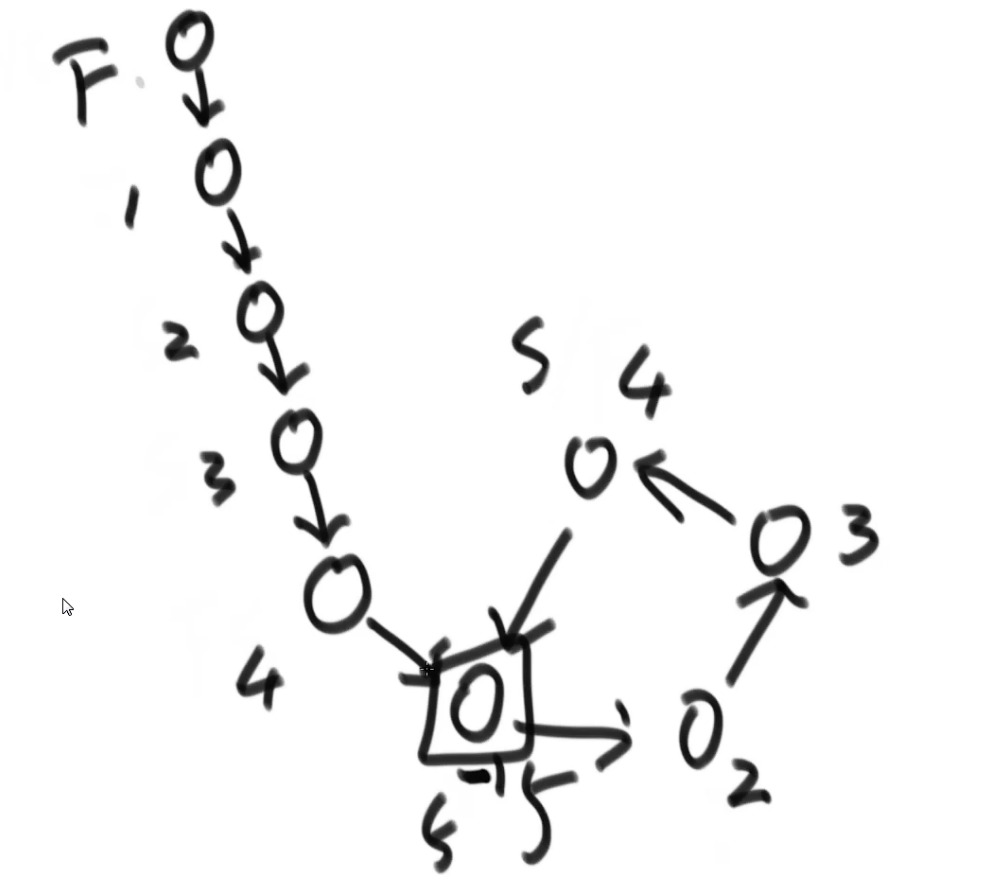 F
1
2
3
4
5 4
3
2
1 5